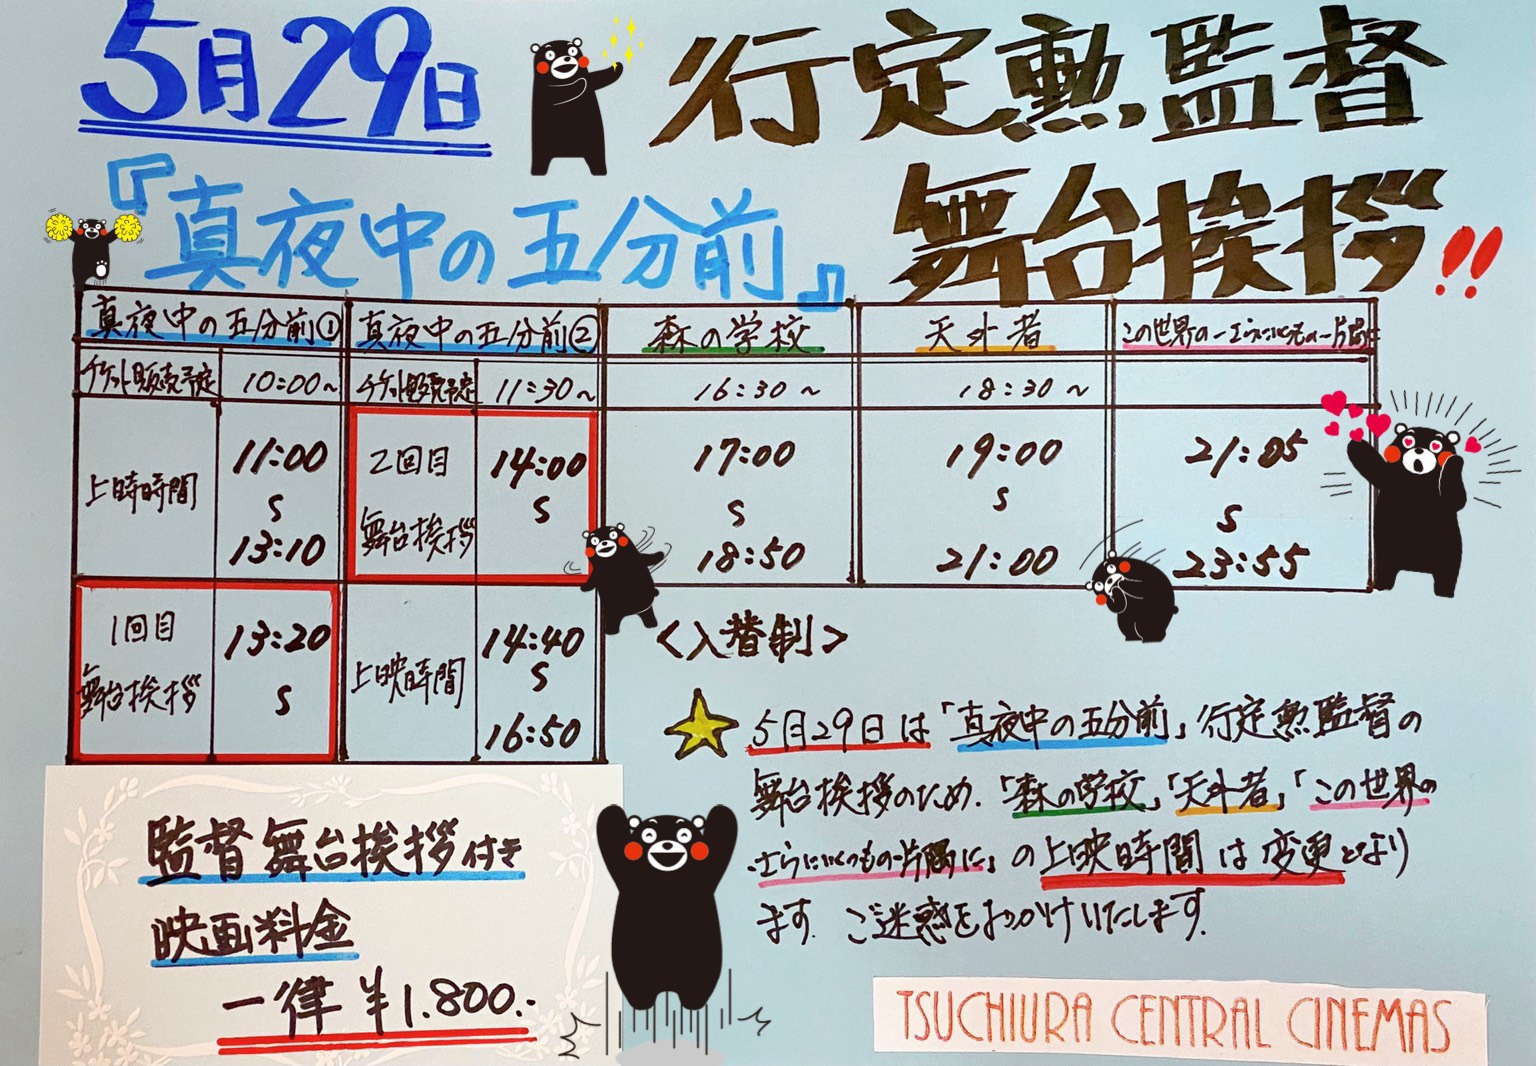 5月29日
行定勲監督
『真夜中の五分前』
舞台挨拶!!
真夜中の五分前① 真夜中の五分前② 森の学校 天外者 この世界の
チケット販売予定 10:00～ チケット販売予定 11:30～ 16:30～ 18:30～
上時時間 11:00 S 13:10
2回目 舞台挨拶 14:00 S
17:00 S 18:50
19:00 S 21:00
21:05 S 23:55
1回目 舞台挨拶 13:20 S
上映時間 14:40 S 16:50
<入替制>
5月29日は「真夜中の五分前」行定勲監督の
舞台挨拶のため.「森の学校」「天外者」「この世界の
さらにいくつもの片隅に」の上映時間は変更となり
ます. ご迷惑をおかけいたします.
監督舞台挨拶付き
映画料金
一律 ¥1.800.-
TSUCHIURA CENTRAL CINEMAS